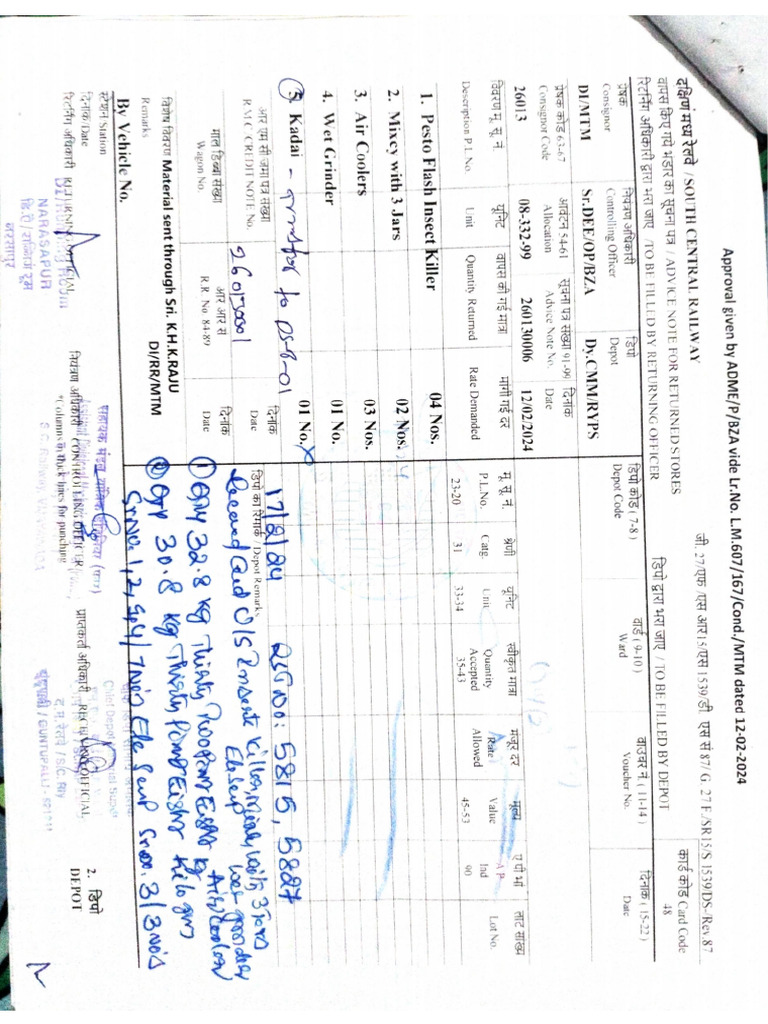 Approval given by ADME/P/BZA vide Lr.No. L.M.607/167/Cond./MTM dated 12-02-2024
जी. 27/एफ /एस आर15/एस 1539/डी एस सं 87/ G. 27 F./SR15/S 1539/DS-/Rev.87
दक्षिणं मध्य रेलवे / SOUTH CENTRAL RAILWAY
वापस किए गये भंडार का सूचना पत्र / ADVICE NOTE FOR RETURNED STORES
रिटर्निंग अधिकारी द्वारा भरा जाए / TO BE FILLED BY RETURNING OFFICER
डिपो द्वारा भरा जाए / TO BE FILLED BY DEPOT
कार्ड कोड Card Code
48
प्रेषक
Consignor
नियंत्रण अधिकारी
Controlling Officer
डिपो
Depot
डिपो कोड ( 7-8 )
Depot Code
वार्ड ( 9-10 )
Ward
वाउचर नं. ( 11-14 )
Voucher No.
दिनांक ( 15-22 )
Date
DI/MTM
Sr.DEE/OP/BZA
Dy.CMM/RYPS
प्रेषक कोड 63-67
Consignor Code
आवंटन 54-61
Allocation
सूचना पत्र संख्या 91-96
Advice Note No.
दिनांक
Date
26013
08-332-99
260130006
12/02/2024
विवरण मू. सू. नं.
Description P.L. No.
यूनिट
Unit
वापस की गई मात्रा
Quantity Returned
मांगी गई दर
Rate Demanded
मू. सू. नं.
P.L.No.
23-20
श्रेणी
Catg.
31
यूनिट
Unit
33-34
स्वीकृत मात्रा
Quantity Accepted
35-43
मंजूर दर
Rate Allowed
मूल्य
Value
45-53
ए पी भां
A.P. Ind
90
लाट संख्या
Lot No.
1. Pesto Flash Insect Killer 04 Nos.
2. Mixcy with 3 Jars 02 Nos.
3. Air Coolers 03 Nos.
4. Wet Grinder 01 No.
5. Kadai - 01 No.
आर एम सी जमा पत्र संख्या
R.M.C CREDIT NOTE No.
260130001
दिनांक
Date
डिपो का रिमार्क / Depot Remarks
माल डिब्बा संख्या
Wagon No.
आर आर स
R.R. No. 84-89
दिनांक
Date
17/2/24 5815, 5827
Received Cond O/S Insect Killer, 3 Jars
① Qty 32.8 kg Thirty Two Point Eight kg
② Qty 30.8 kg Thirty Point Eight Kilo gms
Sr.No. 1, 2, 5, 4/7 Nos Sr.no. 3/3 Nos
विशेष विवरण Material sent through Sri. K.H.K.RAJU
Remarks DI/RR/MTM
By Vehicle No.
स्टेशन Station
दिनांक/Date
रिटर्निंग अधिकारी RETURNING OFFICIAL
NARASAPUR
नरसापुर
नियंत्रण अधिकारी CONTROLLING OFFICER
*Columns in thick lines for punching
प्राप्तकर्ता अधिकारी RECEIVING OFFICIAL
द.म.रेलवे / S.C. Rly
GUNTUPALLI - 521241
2. डिपो
DEPOT